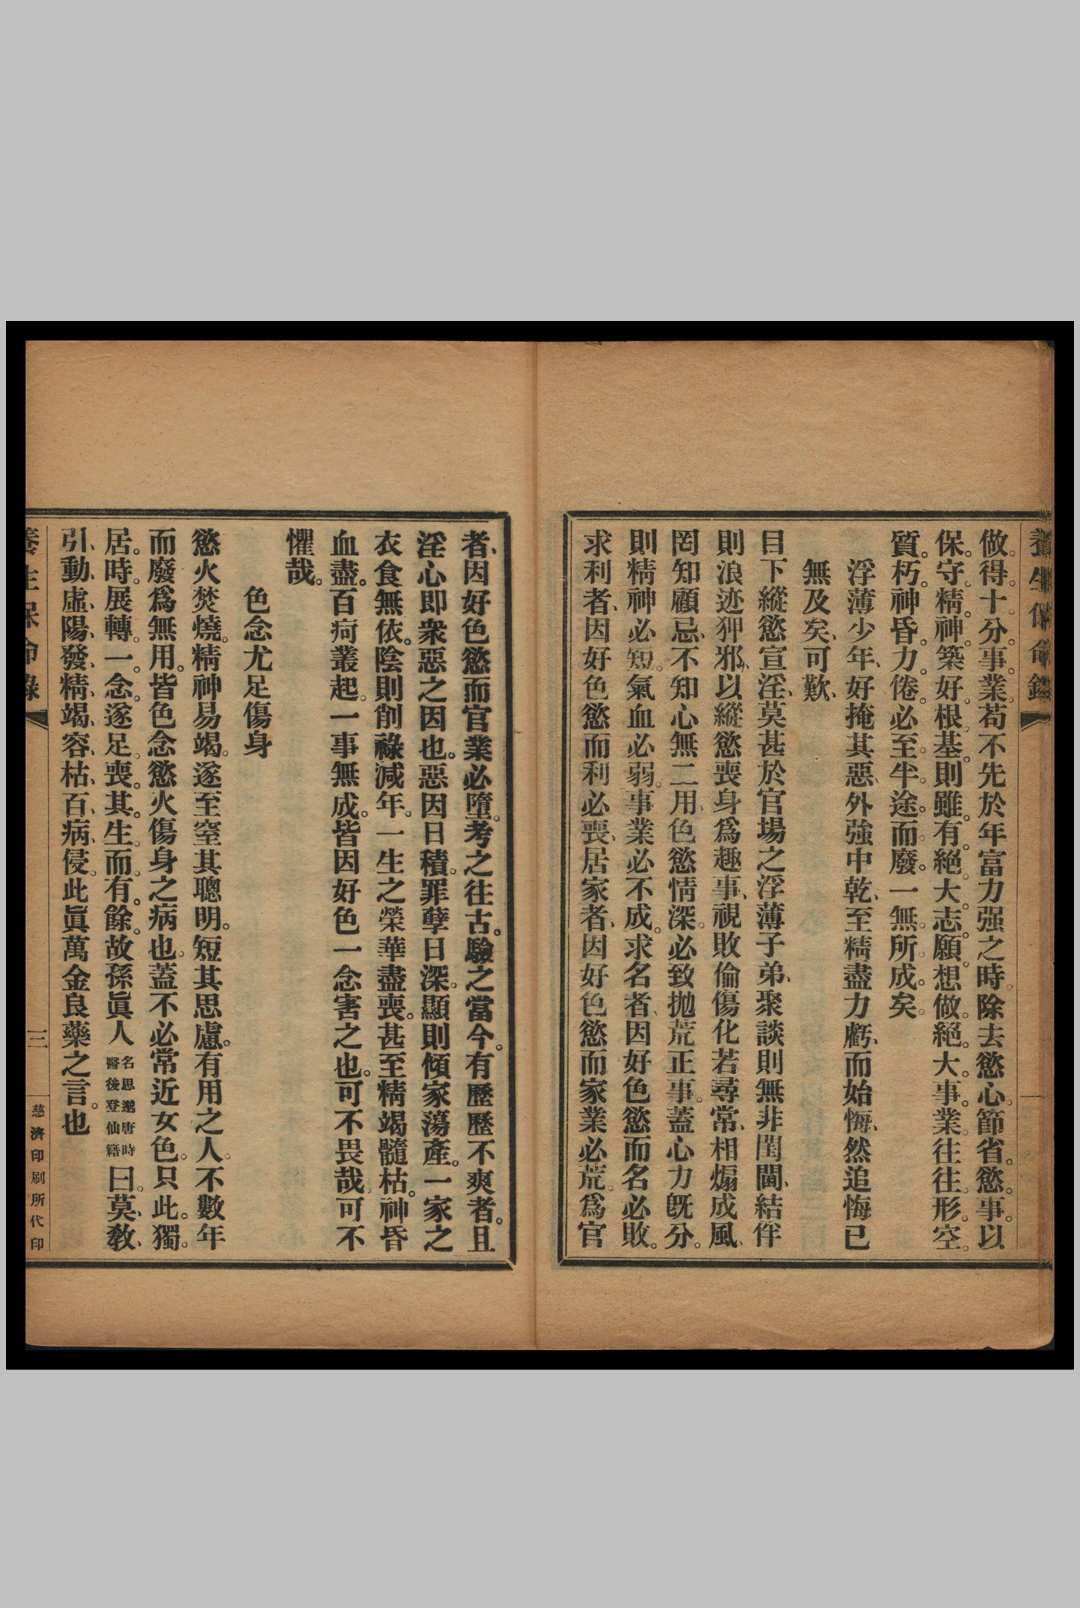 養生保命錄
做得十分事業苟不先於年富力强之時除去慾心節省慾事以
保守精神築好根基則雖有絕大志願想做絕大事業往往形空
質朽神昏力倦必至半途而廢一無所成矣
浮薄少年好掩其惡外強中乾至精盡力虧而始悔然追悔已
無及矣可歎
目下縱慾宣淫莫甚於官場之浮薄子弟聚談則無非閨閫結伴
則浪迹狎邪以縱慾喪身爲趣事視敗倫傷化若尋常相煽成風
罔知顧忌不知心無二用色慾情深必致拋荒正事蓋心力旣分
則精神必短氣血必弱事業必不成求名者因好色慾而名必敗
求利者因好色慾而利必喪居家者因好色慾而家業必荒爲官
者因好色慾而官業必墮考之往古驗之當今有歷歷不爽者且
淫心即衆惡之因也惡因日積罪孽日深顯則傾家蕩產一家之
衣食無依陰則削祿減年一生之榮華盡喪甚至精竭髓枯神昏
血盡百疴叢起一事無成皆因好色一念害之也可不畏哉可不
懼哉
色念尤足傷身
慾火焚燒精神易竭遂至窒其聰明短其思慮有用之人不數年
而廢爲無用皆色念慾火傷身之病也蓋不必常近女色只此獨
居時展轉一念遂足喪其生而有餘故孫眞人名思邈唐時醫後登仙籍曰莫敎
引動虛陽發精竭容枯百病侵此眞萬金良藥之言也
養生保命錄
三
慈濟印刷所代印